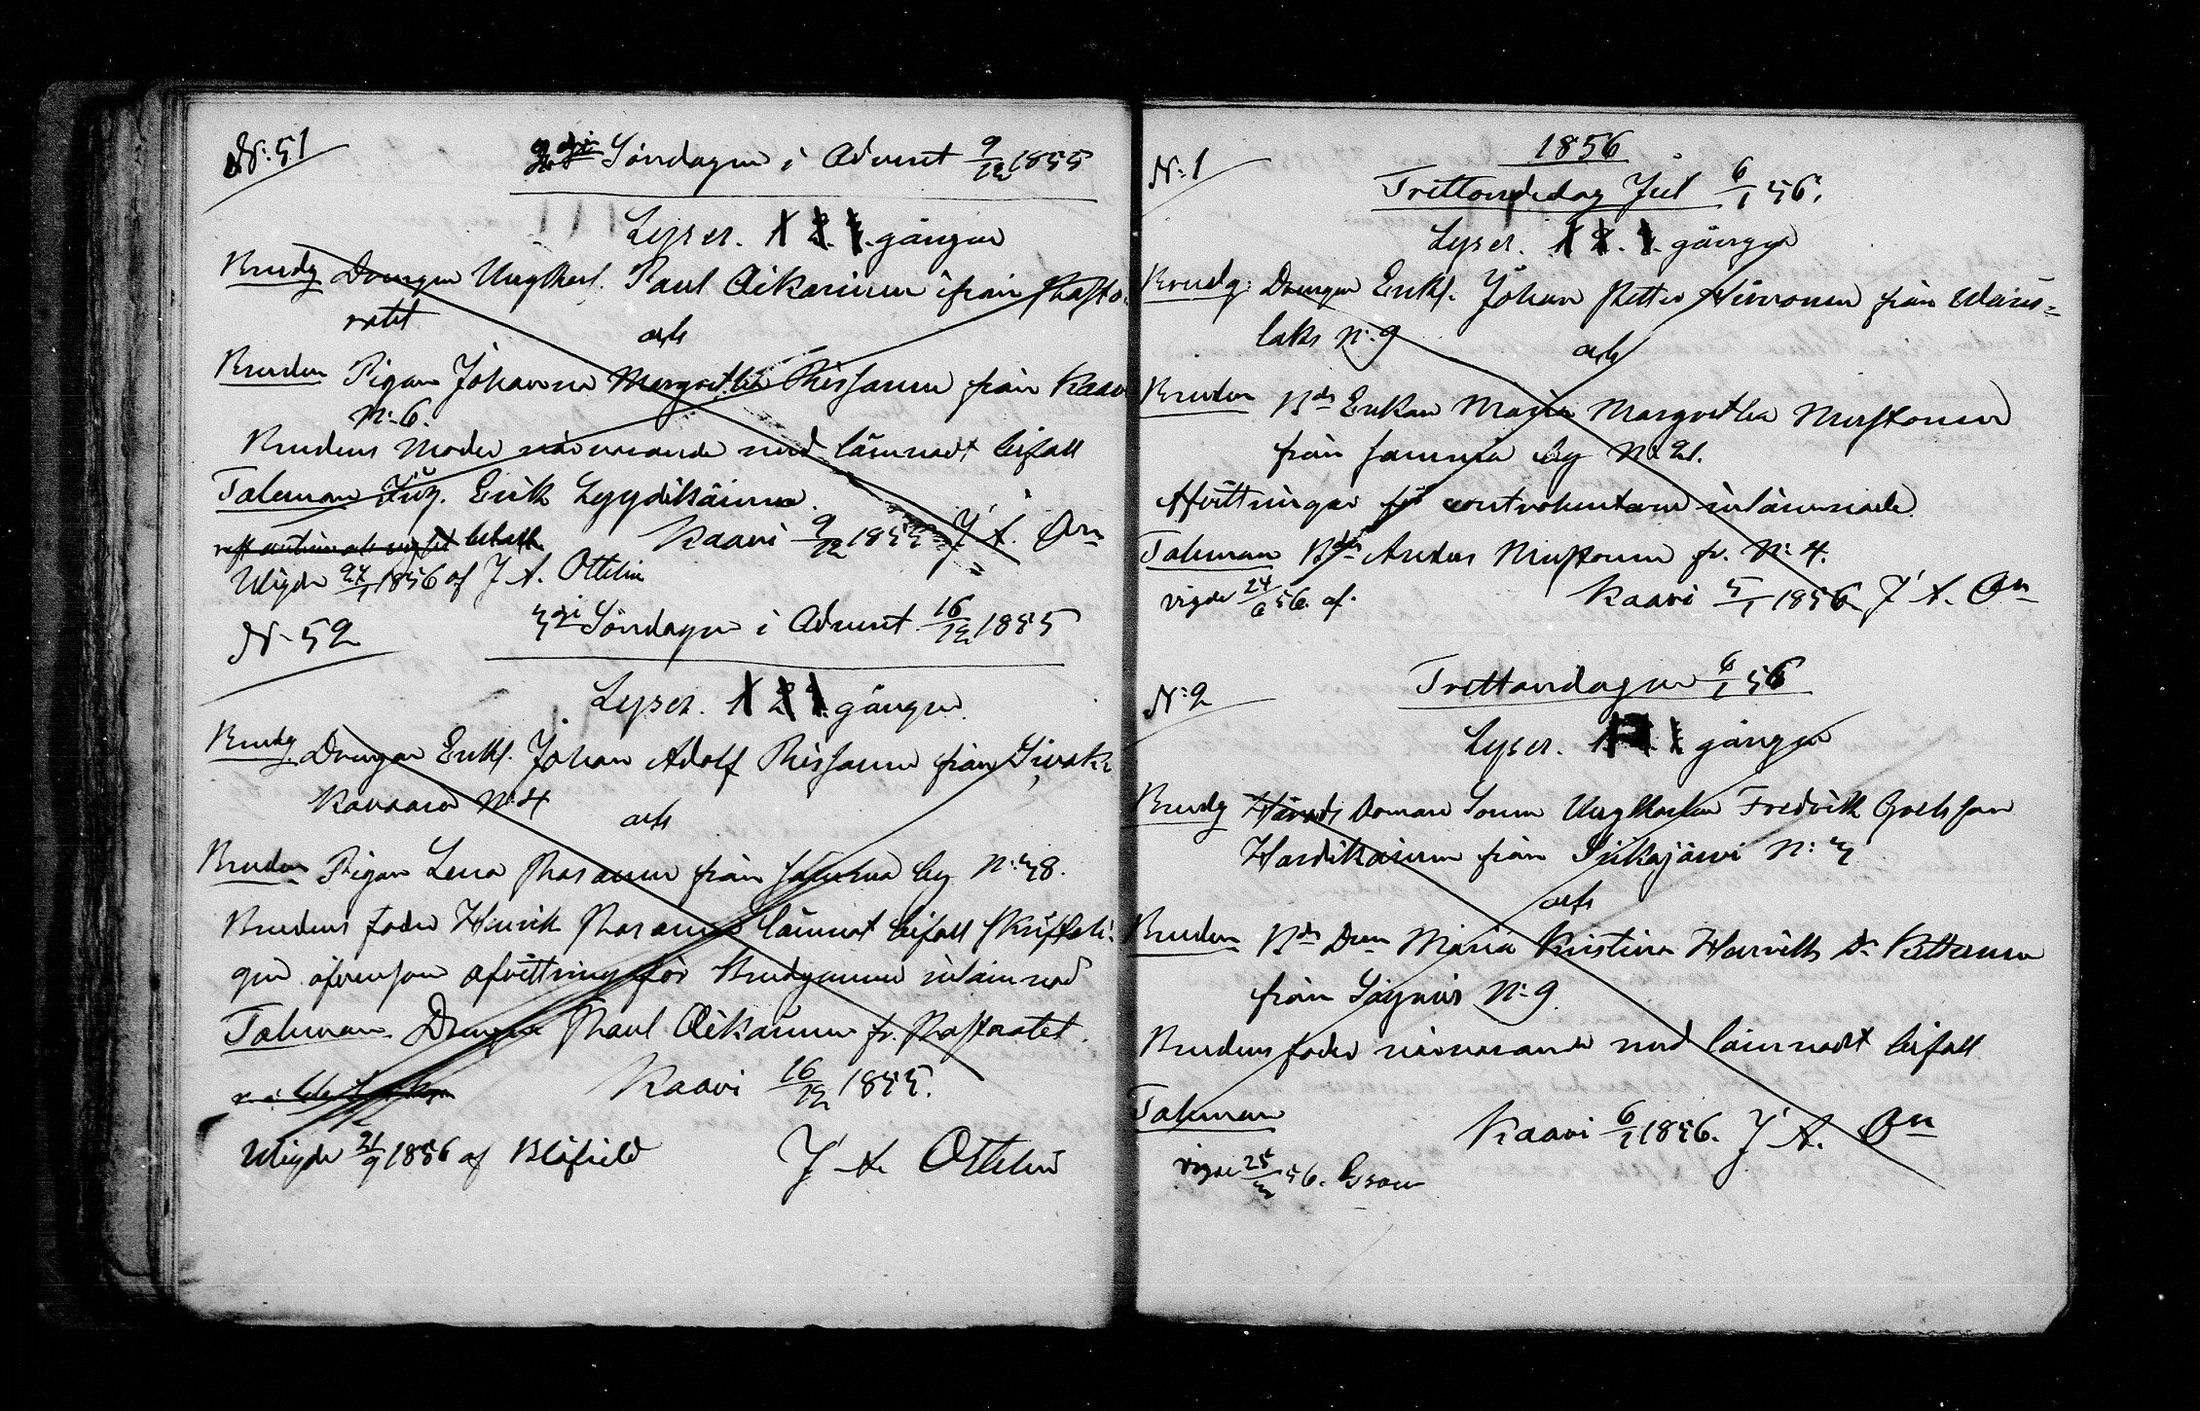 N:51
2dje Söndagen i Advent 9/12 1855
Lyser. 1 2. 3. gången
Brudg Drengen Ungkarl. Paul Oikarinen ifrån Pasto-
ratet
och
Bruden Pigan Johanna Margretha Rissanen från Kaavi
N:6.
Brudens Moder närvarande med lämnadt bifall
Taleman Erik Lyydikäinen.
Kaavi 9/12 1855 J A. On
Vigde 27/1 1856 af J A. Ottelin
N:52
3dje Söndagen i Advent 16/12 1855
Lyser. 1 2 3 gången
Brudg Drengen Enkl. Johan Adolf Rissanen från Sivakka
Kavaara N:4
och
Bruden Pigan Lena Räsänen från by N:38.
Brudens fader Henrik Räsänen lämnat bifall skrifteli-
gen äfvensom afvittring för Brudgummen inlämnad
Taleman Drengen Paul Oikarinen fr. Pastoratet.
Kaavi 16/12 1855.
Vigde 21/9 1856 af Blåfield
J A Ottelin
1856
N:1
Trettondedag Jul 6/1 56.
Lyser. 1 2. 3. gången
Brudg: Drengen Enkl. Johan Petter Hirvonen från
laks N:9
och
Bruden Bde Enkan Maria Margretha Mustonen
från by N:21.
Afvittringar för contrahenterne inlämnade.
Taleman Bde Anders Mustonen fr. N:4.
Kaavi 5/1 1856 J A. On
vigde 24/6 56. af.
N:2
Trettondagen 6/1 56
Lyser. 1 gången
Brudg Härads Domare Sonen Ungkarlen Fredrik
Hardikainen från Siikajärvi N:3
och
Bruden Bde Drn Maria Kristina Henriks Dr
från N:9.
Brudens fader närvarande med lämnadt bifall
Taleman
Kaavi 6/1 1856. J A. On
vigde 25/3 56.